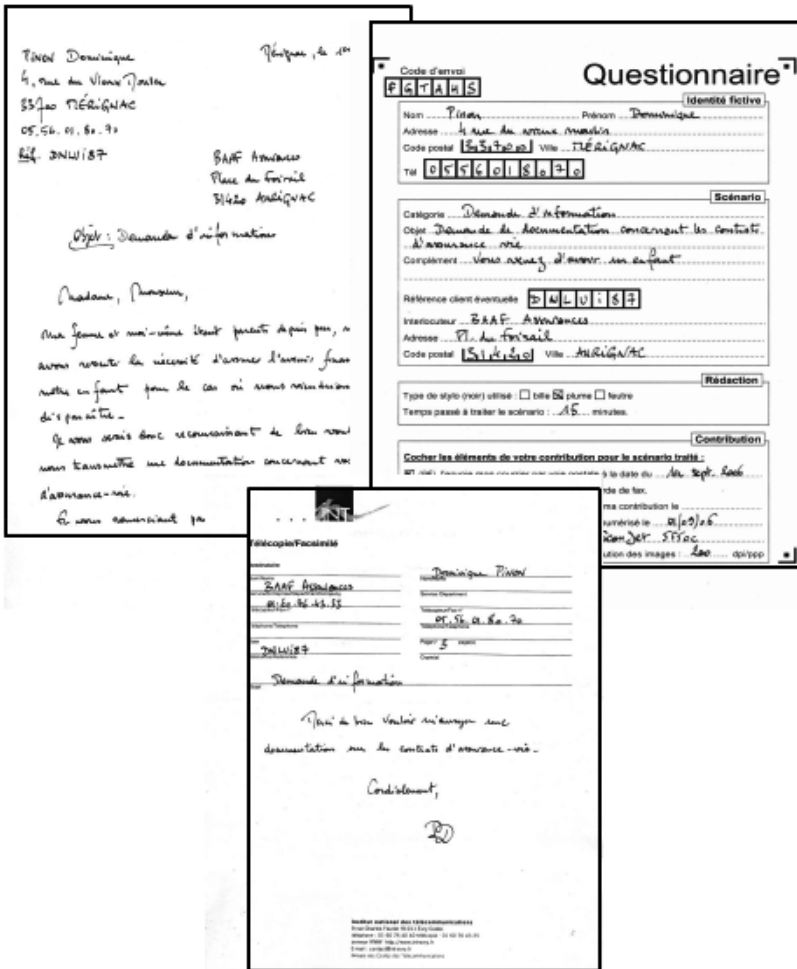 Pinon Dominique
Mérignac, le 1er
4, rue du Vieux Moulin
33700 MÉRIGNAC
05.56.01.80.70
Réf. DNLUi87
BAAF Assurances
Place du Foirail
31420 AURIGNAC
Objet : Demande d'information
Madame, Monsieur,
Ma femme et moi-même étant parents depuis peu, n
avons ressenti la nécessité d'assurer l'avenir
notre enfant pour le cas où nous viendrions
disparaître.
Je vous serais donc reconnaissant de bien
nous transmettre une documentation concernant vos
d'assurance-vie.
En vous remerciant par
Code d'envoi
Questionnaire
FGTAHS
Identité fictive
Nom Pinon Prénom Dominique
Adresse 4 rue du vieux moulin
Code postal 33700 Ville MÉRIGNAC
Tél 0556018070
Scénario
Catégorie Demande d'information
Objet Demande de documentation concernant les contrats
d'assurance vie
Complément Vous venez d'avoir un enfant
Référence client éventuelle DNLUi87
Interlocuteur BAAF Assurances
Adresse Pl. du Foirail
Code postal 31420 Ville AURIGNAC
Rédaction
Type de stylo (noir) utilisé : bille plume feutre
Temps passé à traiter le scénario : 15 minutes.
Contribution
Cocher les éléments de votre contribution pour le scénario traité :
à la date du 1er sept. 2006
de fax.
ma contribution le
numérisé le 01/09/06
ScanJet 5550c
ution des images : 200 dpi/ppp
INT
Télécopie/Facsimilé
BAAF Assurances
Dominique Pinon
Service/Department
05.56.01.80.70
DNLUi87
3
Demande d'information
Merci de bien vouloir m'envoyer une
documentation sur les contrats d'assurance-vie.
Cordialement,
PD
Institut national des télécommunications